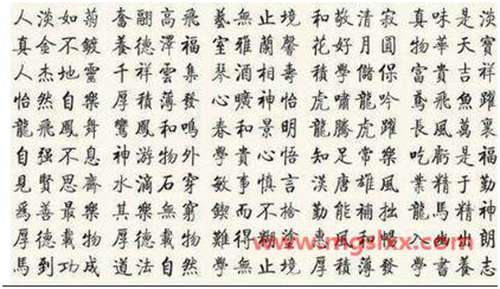 人淡如菊 奮翮高飛 藝無止境 和敬清寂 真味是淡
真金不鍍 養德澤福 室雅蘭馨 花好月圓 物華天寶
人杰地靈 千祥雲集 琴酒相壽 積學儲 富貴吉祥
怡然自樂 厚積薄發 心曠神怡 虎嘯龍吟 鳶飛魚躍
龍飛鳳舞 鸞鳳和鳴 春和景明 龍騰虎躍 長風萬裏
自强不息 神游物外 學貴心悟 知足常樂 吃虧是福
見賢思齋 水滴石穿 敏事慎言 漢唐雄風 業精于勤
爲善最樂 其樂無窮 鍥而不捨 勤能補拙 龍馬精神
厚德載物 厚德載物 難得糊塗
馬到功成 道法自然 學無止境 厚積薄發 書養志
www.mgslxx.com